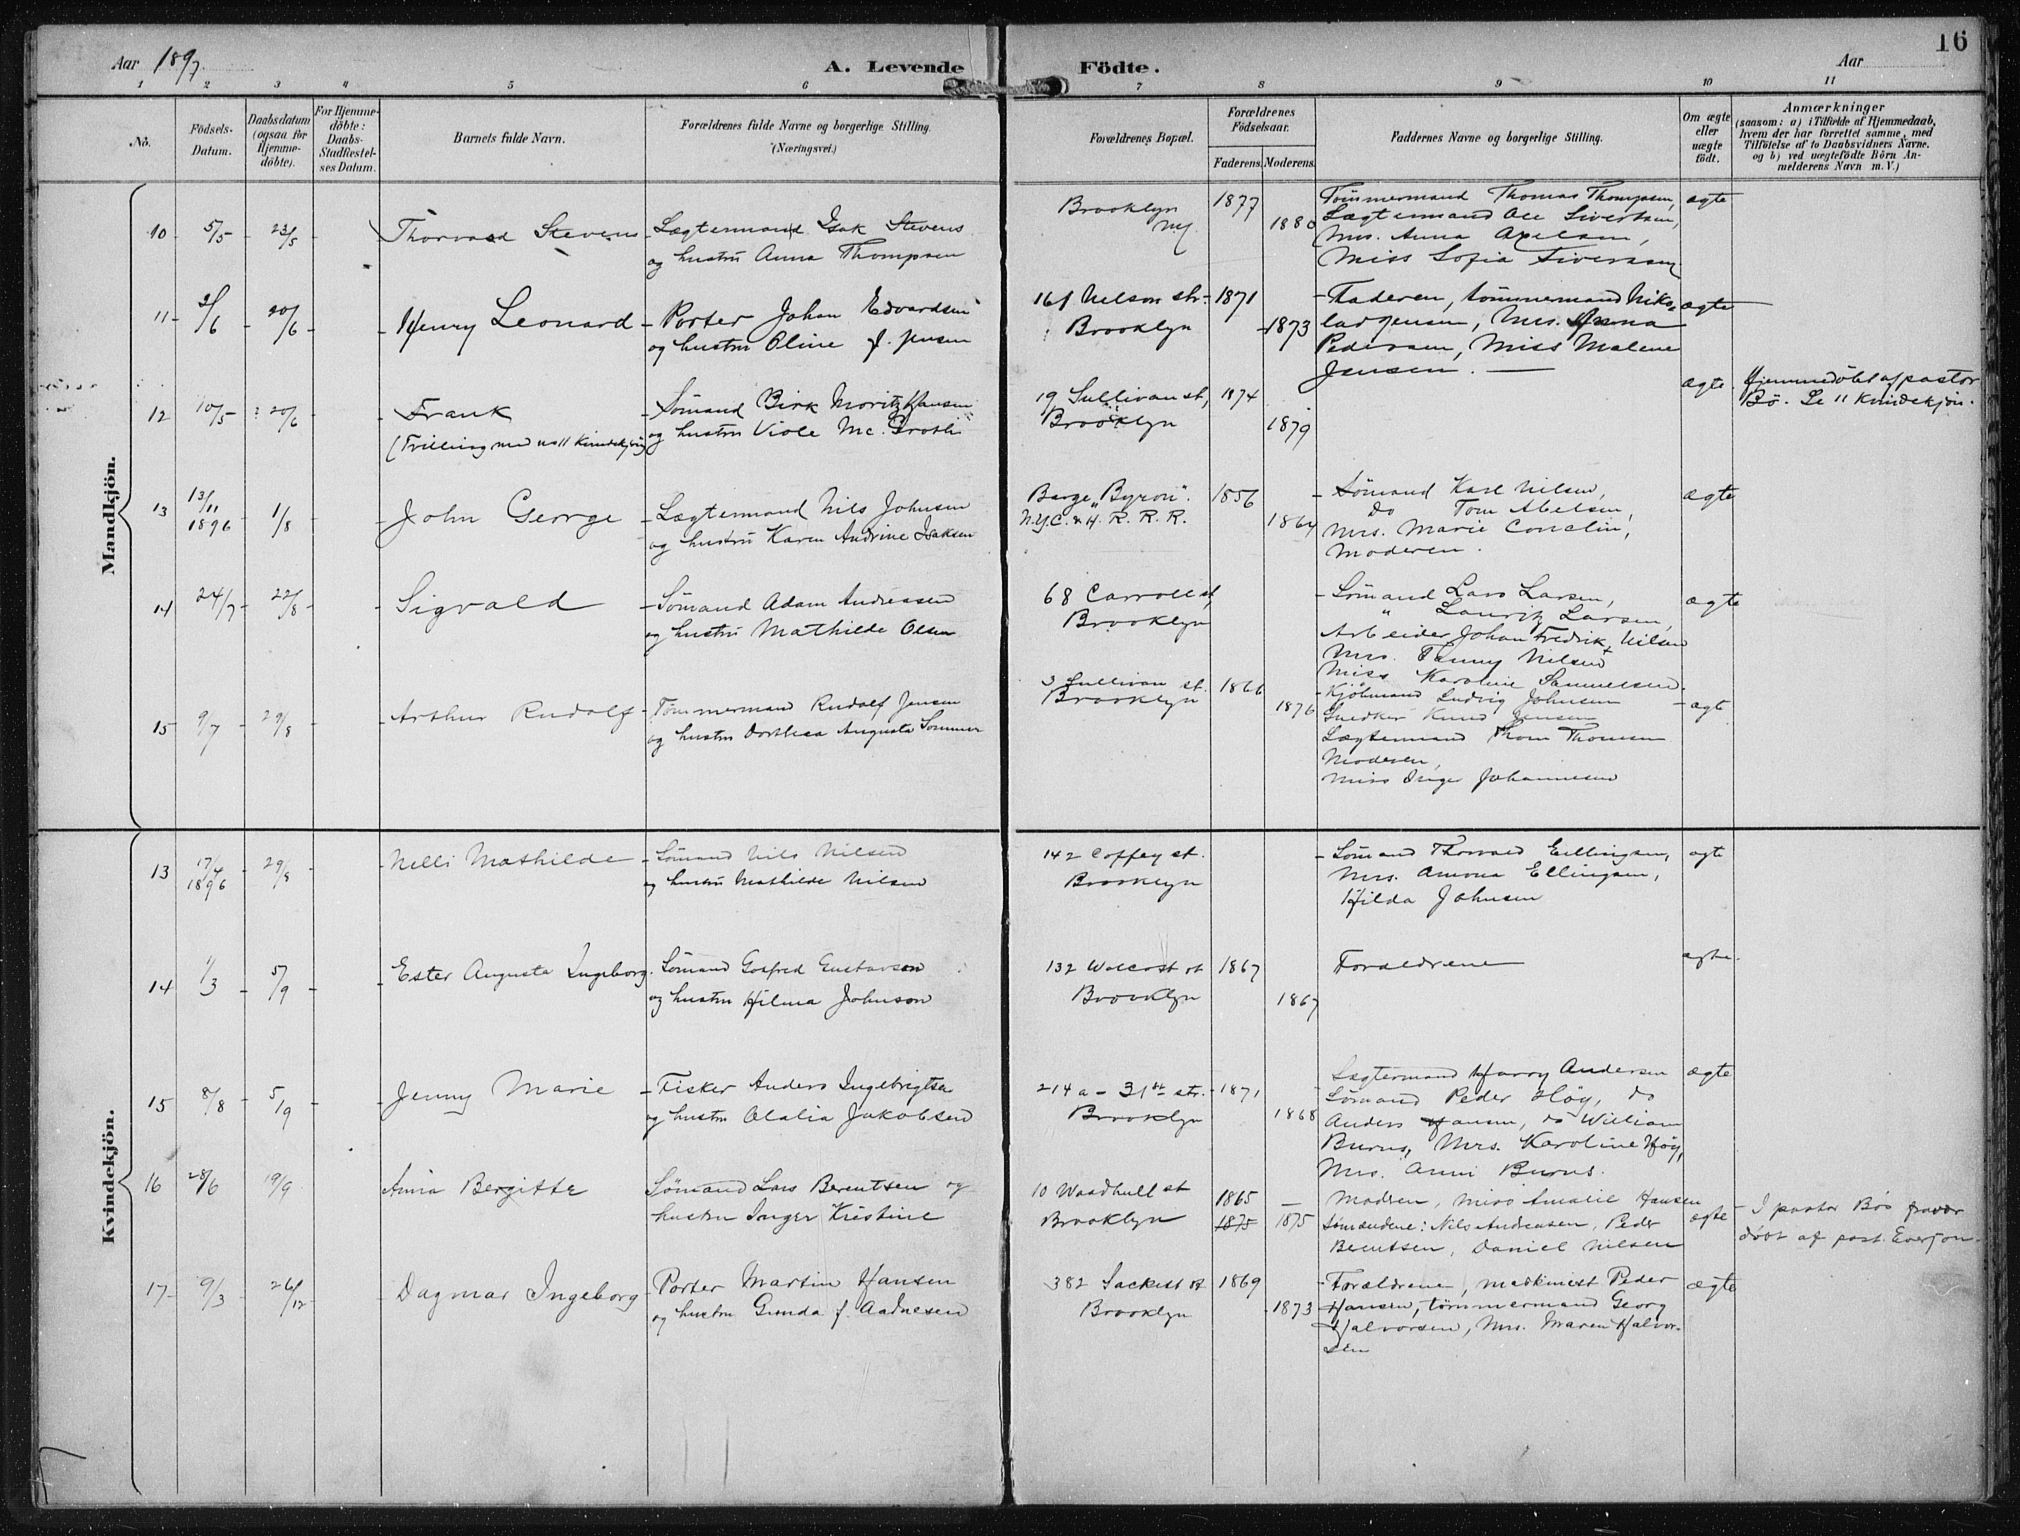 Aar 1897. A. Levende Födte. Aar 16
1 2 3 4 5 6 7 8 9 10 11
No.
Födsels-Datum.
Daabsdatum (ogsaa for Hjemme-döbte).
For Hjemme-döbte: Daabs-Stadfæstel-ses Datum.
Barnets fulde Navn.
Forældrenes fulde Navne og borgerlige Stilling. (Næringsvei.)
Forældrenes Bopæl.
Forældrenes Födselsaar.
Faderens. Moderens.
Faddernes Navne og borgerlige Stilling.
Om ægte eller uægte födt.
Anmærkninger
(saasom: a) i Tilfælde af Hjemmedaab, hvem der har forrettet samme, med Tilföielse af to Daabsvidners Navne. og b) ved uægtefödte Börn An-melderens Navn m. V.)
Mandkjön.
10 5/5 23/5 Thorvald Stevens
Lægtermand Isak Stevens
og hustru Anna Thompsen
Brooklyn
NY.
1877
1880
Tömmermand Thomas Thompsen,
Lægtermand Ole Sivertsen,
Mrs. Anna Axelsen,
Miss Sofia Siversen
ægte
11 2/6 20/6 Henry Leonard
Porter Johan Edvardsen
og hustru Oline f. Jensen
161 Nelson str.
Brooklyn
1871
1873
Faderen, tömmermand Niko-
lai Jensen, Mrs. Anna
Pedersen, Miss Malene
Jensen.
ægte
12 10/5 20/6 Frank
(Tvilling med no 11 Kvindekjön)
Sömand Birk Moritz Hansen
og hustru Viole Mc. Groth
19 Sullivan st,
Brooklyn
1874
1879
ægte.
Hjemmedöbt af pastor
Bö. Se 11 Kvindekjön.
13 13/11 1896 1/8 John George
Lægtermand Nils Johnsen
og hustru Karen Andrine Isaksen
Barge "Byron".
N.Y.C. & H. R. R. R.
1856
1864
Sömand Karl Nilsen,
Do Tom Abelsen,
Mrs. Marie Conclin,
Moderen.
ægte
14 24/7 22/8 Sigvald
Sömand Adam Andreasen
og hustru Mathilde Olsen
68 Carroll st,
Brooklyn
Sömand Lars Larsen,
" Lauritz Larsen,
Arbeider Johan Fredrik Nilsen
Mrs. Fanny Nilsen
Miss Karoline Samuelsen.
ægte
15 9/7 29/8 Arthur Rudolf
Tömmermand Rudolf Jensen
og hustru Dorthea Augusta Sommer
3 Sullivan st.
Brooklyn
1866
1876
Kjöbmand Ludvig Johnsen
Snedker Knud Jensen
Lægtermand Thom Thomsen
Moderen,
Miss Inger Johannesen
ægt
Kvindekjön.
13 17/4 1896 29/8 Nelli Mathilde
Sömand Nils Nilsen
og hustru Mathilde Nilsen
142 Coffey st.
Brooklyn
Sömand Thorvald Ellingsen,
Mrs. Amona Ellingsen,
Hilda Johnsen
ægte
14 1/3 5/9 Ester Augusta Ingeborg.
Sömand Gotfred Gustavson
og hustru Hilma Johnson
132 Wolcott st
Brooklyn
1867
1867
Forældrene
ægte.
15 8/8 5/9 Jenny Marie
Fisker Anders Ingebrigtsen
og hustru Olalia Jakobsen
214a - 31st str.
Brooklyn
1871
1868
Lægtermand Harry Andersen
Sömand Peder Höy, do
Anders Hansen, do William
Burns, Mrs. Karoline Höy,
Mrs. Anni Burns.
ægte
16 28/6 19/9 Anna Bergitte
Sömand Lars Berentsen og
hustru Inger Kristine
10 Woodhull st
Brooklyn
1865
1875
1875
Modren, Miss Amalie Hansen
Sömændene: Nils Andreasen, Peder
Berentsen, Daniel Nilsen
ægte
I pastor Bös fravær
döbt af past. Everson.
17 9/3 26/12 Dagmar Ingeborg
Porter Martin Hansen
og hustru Gunda f. Aadnesen
382 Sackett st
Brooklyn
1869
1873
Forældrene, maskinist Peder
Hansen, tömmermand Georg
Halvorsen, Mrs. Maren Halvor-
sen
ægte